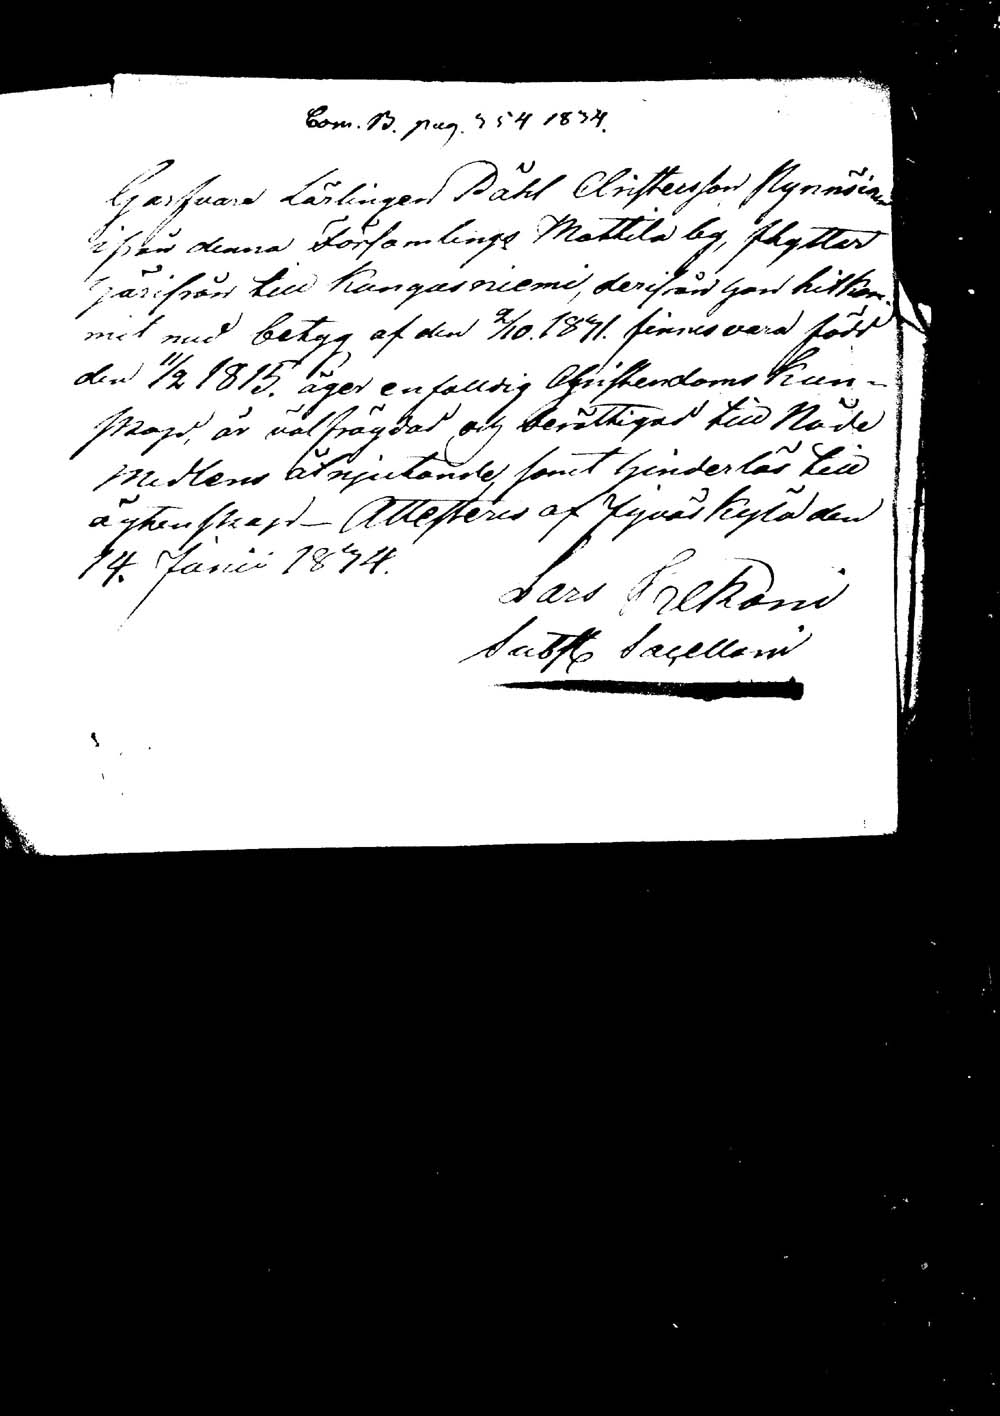 Com. B. pag. 354 1834.
Garfvare Lärlingen Påhl Christersson Kynnäinen
ifrån denna Församlings Mattila by, flyttar
härifrån till Kangasniemi, derifrån han hitkom-
mit med betyg af den 2/10. 1831. finnes vara född
den 11/2 1815. äger enfalldig Christendoms Kun-
skap, är välfrägdad och berättigad till Nåde
Medlens åtnjutande, samt hinderlös till
äghenskap – Attesteres af Jyväskylä den
14. Junii 1834.
Lars
Subst Sacellani